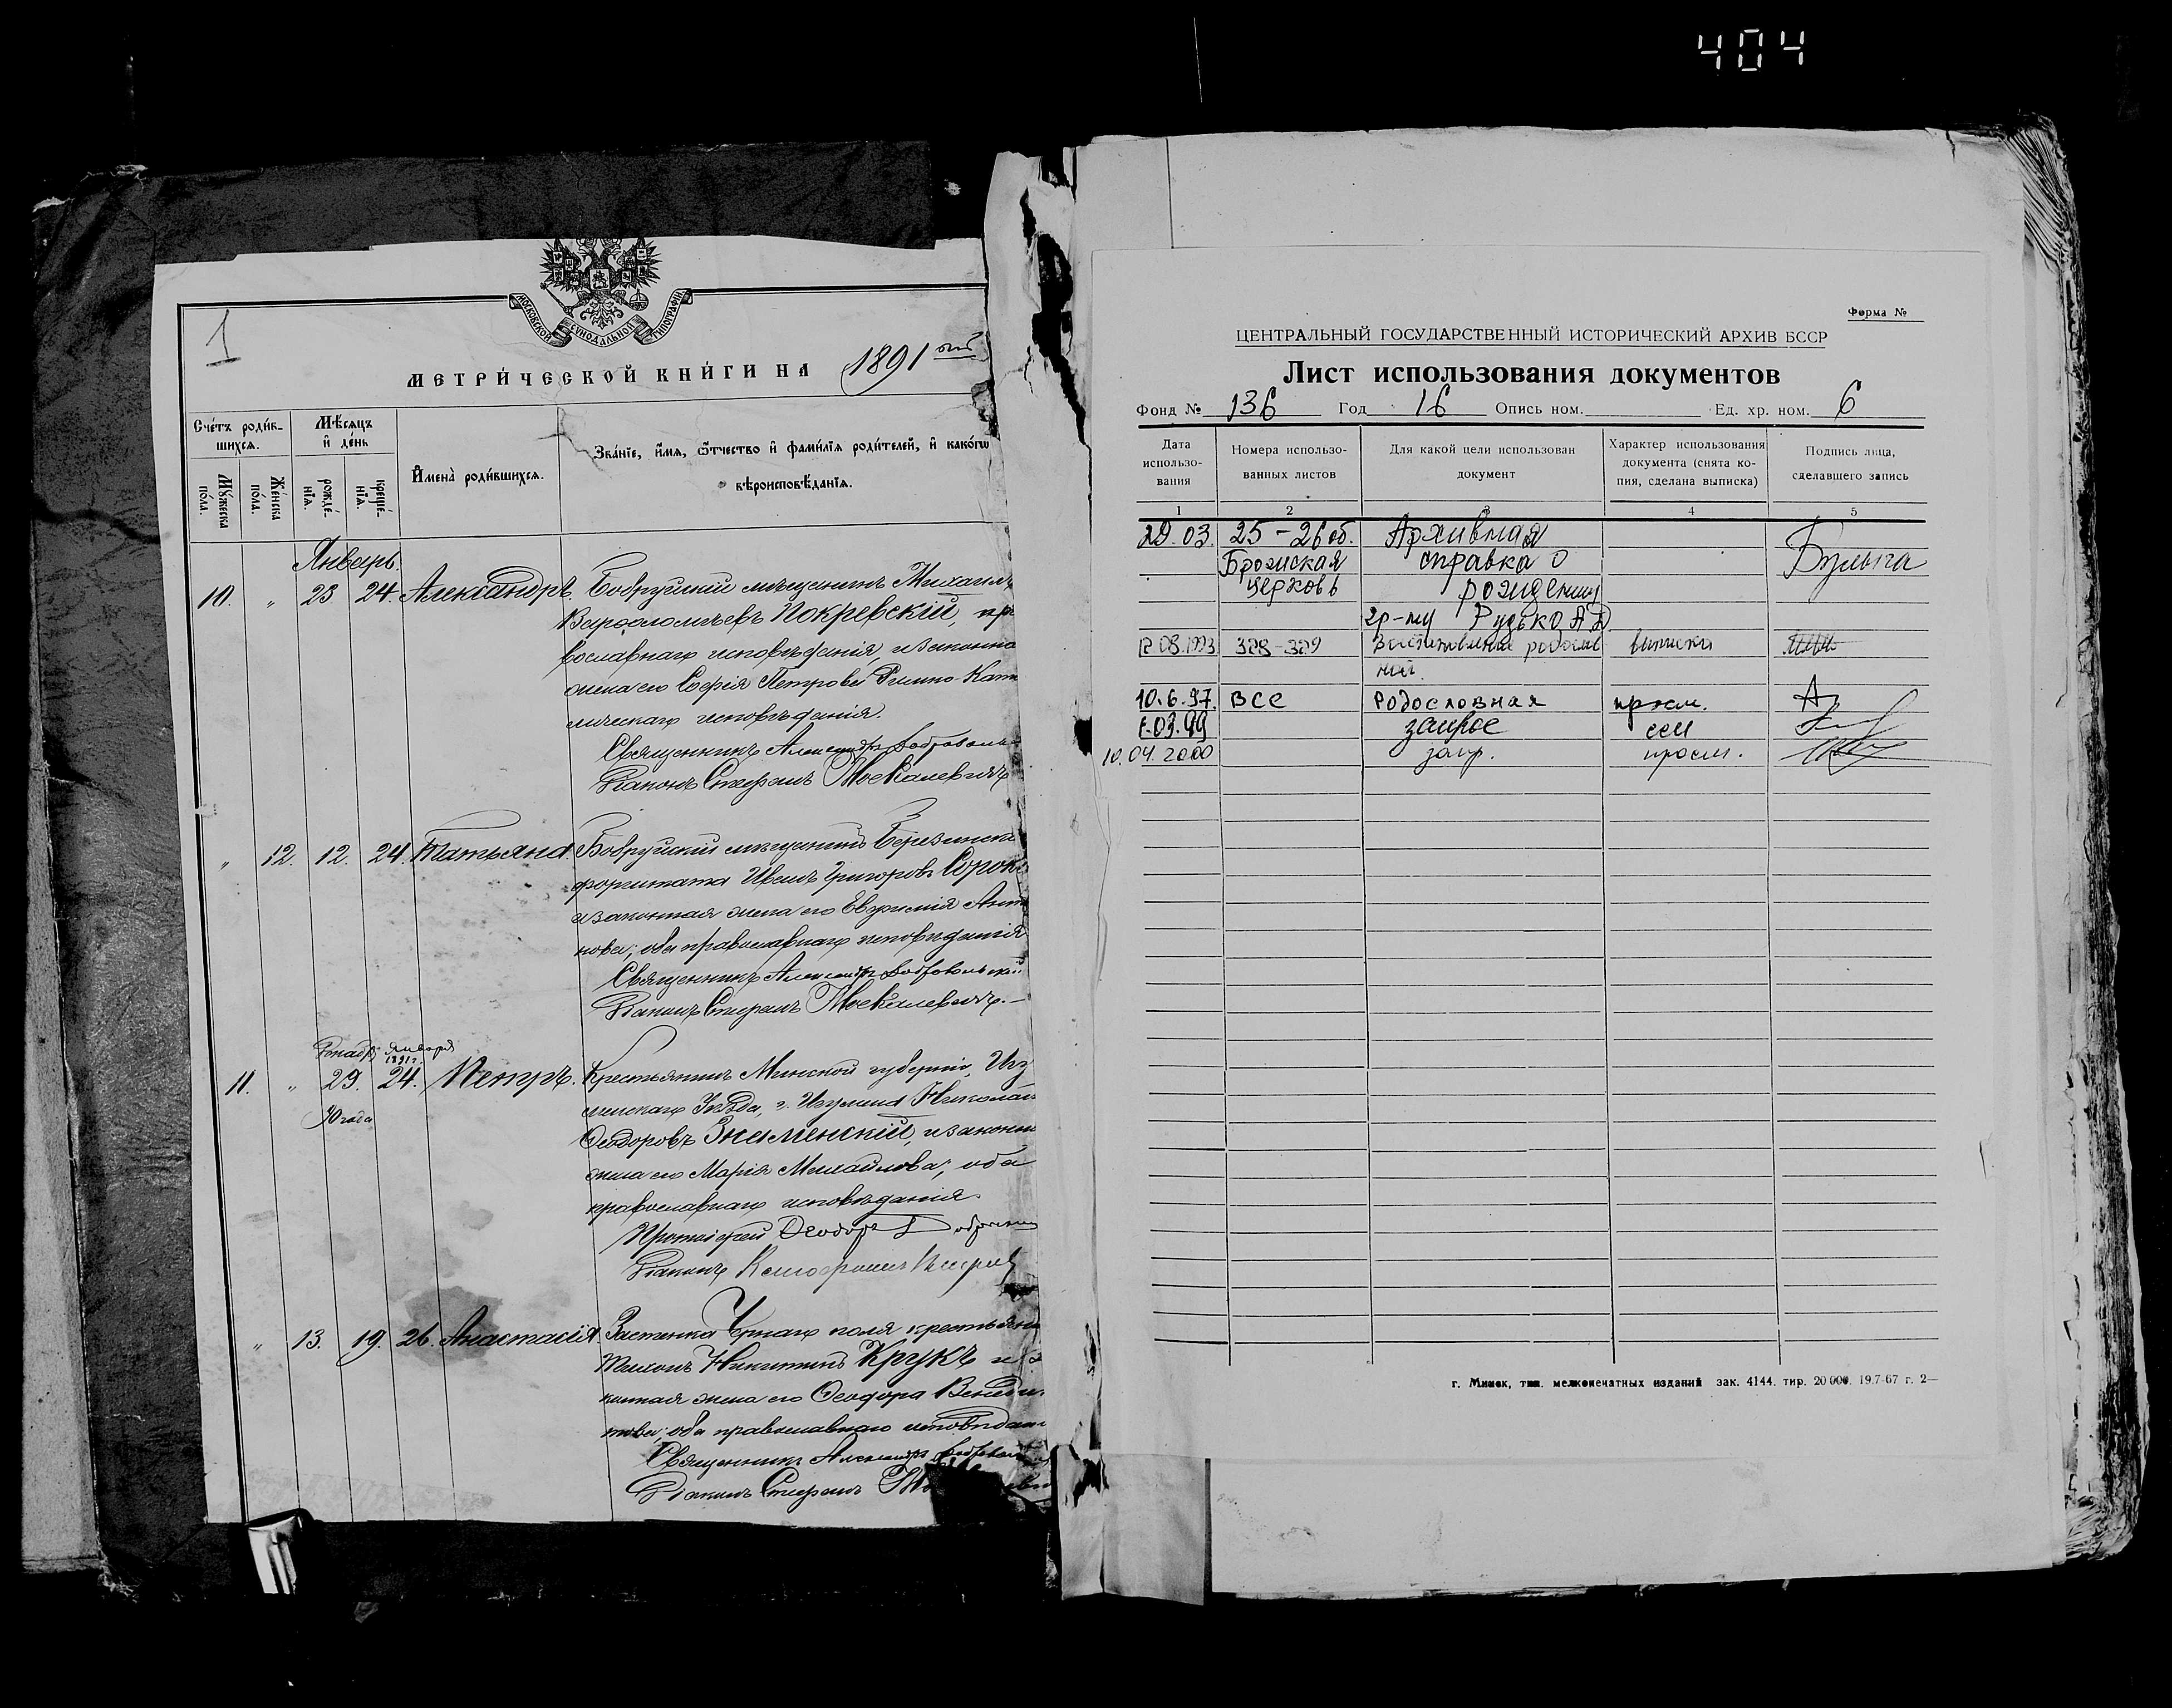 404
МОСКОВСКОЙ СѴНОДАЛЬНОЙ ТИПОГРАФІИ.
1
МЕТРИ́ЧЕСКОЙ КНИ́ГИ НА 1891 год
Счéтъ роди́в-
шихсѧ.
Мѣ́сѧцъ
и҆ де́нь
Мꙋ́жеска
по́ла.
Же́нска
по́ла.
рожде́-
нїѧ.
креще́-
нїѧ.
И҆мена̀ роди́вшихсѧ.
Зва́нїе, и҆́мѧ, ѻ҆́тчество и҆ фами́лїѧ роди́телей, и҆ како́гѡ
вѣроисповѣ́данїѧ.
Январь.
10. „ 23 24. Александръ. Бобруйскій мѣщанинъ Михаилъ
Варѳоломѣевъ Покревскій, пра
вославнаго исповѣданія, и законна
жена его Софія Петрова Римно-Като
лическаго исповѣданія.
Священникъ Александръ Добровольс
Діаконъ Стефанъ Москалевичъ
„ 12. 12. 24. Татьяна. Бобруйскій мѣщанинъ Березинска
форштата Иванъ Григоровъ Сорок
и законная жена его Евфимія Анто
нова; оба православнаго исповѣданія
Священникъ Александръ Добровольскій
Діаконъ Стефанъ Москалевичъ. —
января
1891 г.
11. „ 29. 24. Петръ. Крестьянинъ Минской губерніи, Игу
90 года
менскаго Уѣзда, г. Игумена Николай
Ѳеодоровъ Знаменскій, и законн
жена его Марія Михайлова; оба
православнаго исповѣданія.
Протоіерей Ѳеодоръ
Діаконъ
„ 13. 19. 26. Анастасія. Застенка Чернаго поля крестьяни
Никитинъ Крукъ и з
конная жена его Ѳеодора Венеди
това; оба православнаго исповѣдан
Священникъ Александръ Добровольс
Діаконъ Стефанъ
Форма №
ЦЕНТРАЛЬНЫЙ ГОСУДАРСТВЕННЫЙ ИСТОРИЧЕСКИЙ АРХИВ БССР
Лист использования документов
Фонд № 136 Год 16 Опись ном. Ед. хр. ном. 6
Дата
использо-
вания
Номера использо-
ванных листов
Для какой цели использован
документ
Характер использования
документа (снята ко-
пия, сделана выписка)
Подпись лица,
сделавшего запись
1 2 3 4 5
29.03. 25-26 об. Архивная
Брожская справка о Булыга
церковь рождении
гр-ну Рудько А.Д
08.1993 328-329 выписка
10.6.97. все Родословная просм.
03.99 запрос
10.04.2000 запр. просм.
г. Минск, тип. мелкопечатных изданий зак. 4144. тир. 20 000. 19.7-67 г. 2—